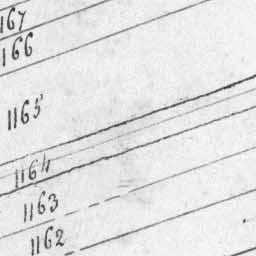 167
166
1165
1164
1163
1162